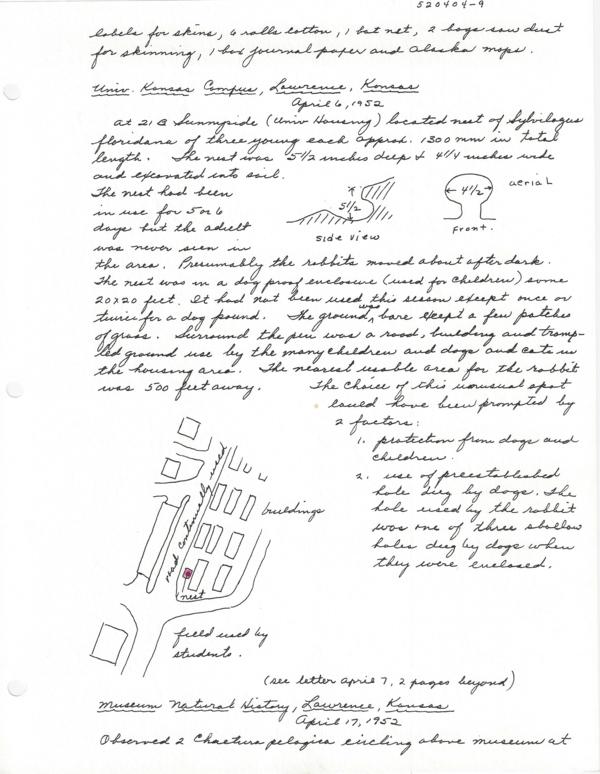 520404-9
labels for skins, 6 rolls cotton, 1 bat net, 2 bags saw dust
for skinning, 1 box journal paper and Alaska maps.
Univ. Kansas Campus, Lawrence, Kansas
April 6, 1952
At 21 B Sunnyside (Univ Housing) located nest of Sylvilagus
floridana of three young each approx. 1300 mm in total
length. The nest was 5 1/2 inches deep & 4 1/4 inches wide
and excavated into soil.
The nest had been
in use for 5 or 6
days but the adult
was never seen in
5 1/2
side view
4 1/2
aerial
Front.
the area. Presumably the rabbits moved about after dark.
The nest was in a dog proof enclosure (used for children) some
20x20 feet. It had not been used this season except once or
twice for a dog pound. The ground was bare except a few patches
of grass. Surround the pen was a road, building and tramp-
led ground use by the many children and dogs and cats in
the housing area. The nearest usable area for the rabbit
was 500 feet away. The choice of this unusual spot
could have been prompted by
2 factors:
1. protection from dogs and
children.
2. use of preestableabed
hole dug by dogs. The
hole used by the rabbit
was one of three shallow
holes dug by dogs when
they were enclosed.
road continually used
buildings
nest
field used by
students.
(see letter April 7, 2 pages beyond)
Museum Natural History, Lawrence, Kansas
April 17, 1952
Observed 2 Chaetura pelagica circling above museum at